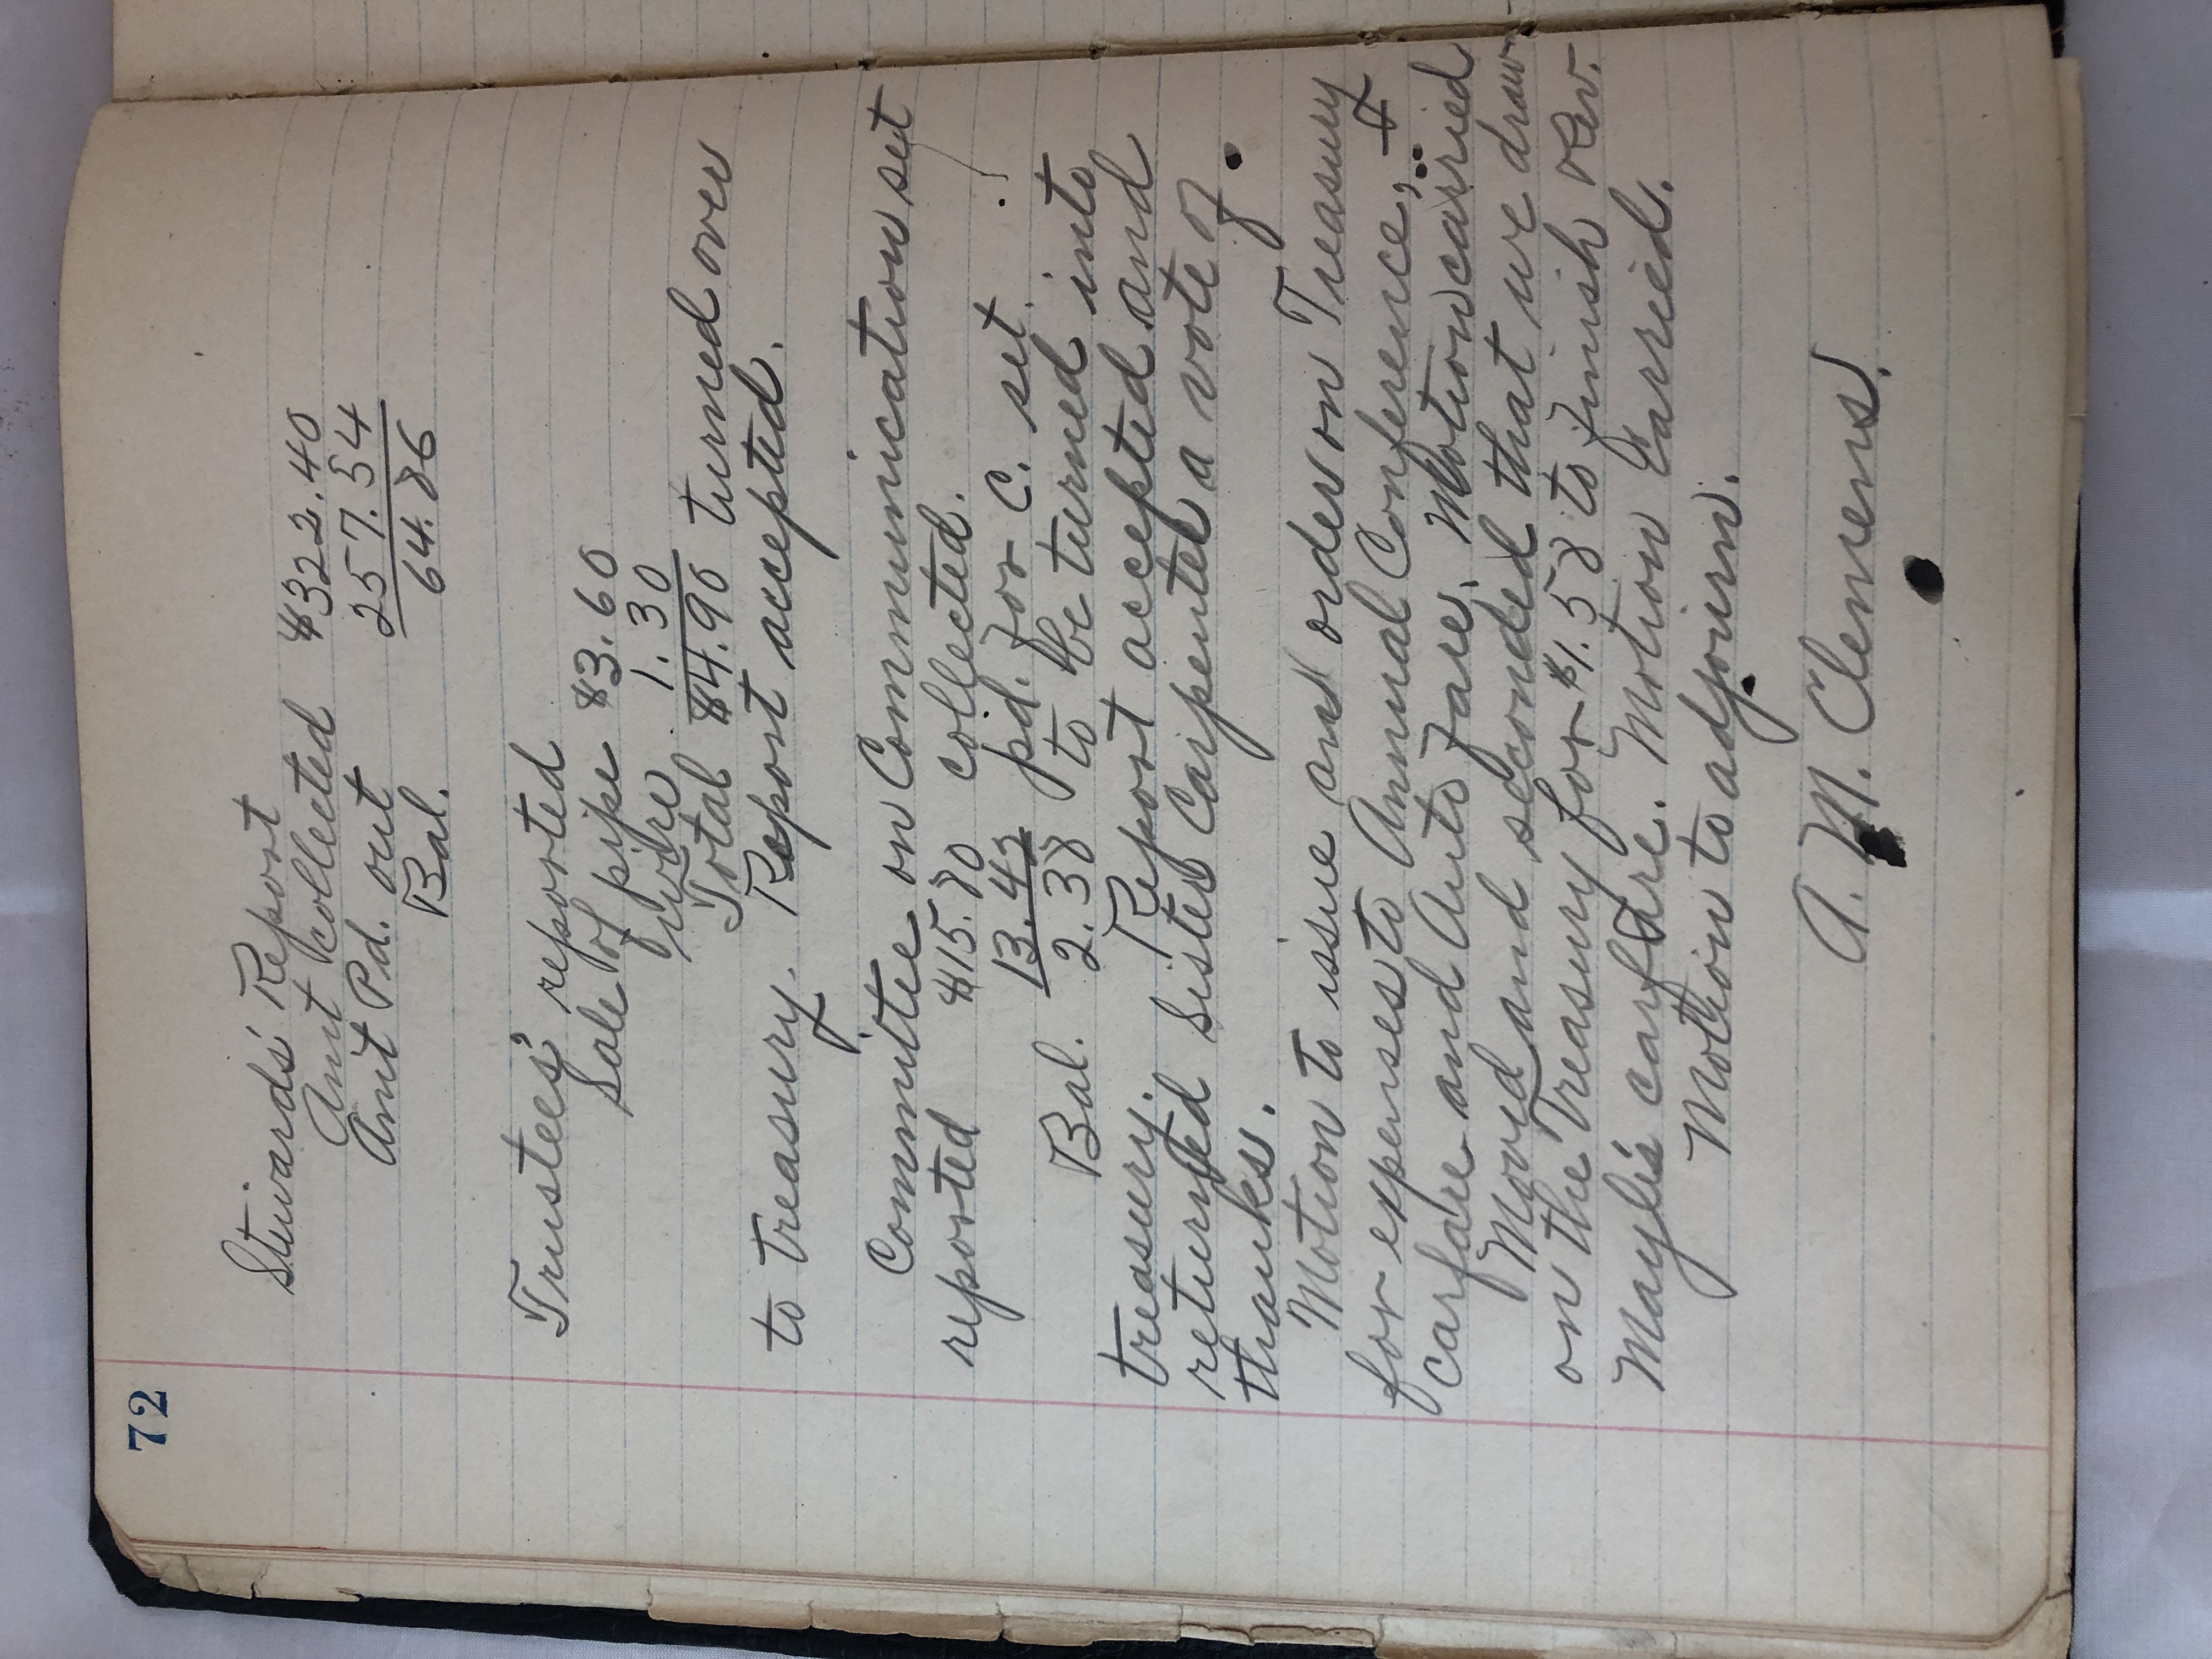 72
Stewards' Report
Amt collected $322.40
Amt Pd. out 257.54
Bal. 64.86
Trustees' reported
Sale of pipe $3.60
wire 1.30
Total $4.90 turned over
to treasury. Report accepted.
Committee on Communication set
reported $15.80 collected.
13.42 pd. for C. set.
Bal. 2.38 to be turned into
treasury. Report accepted and
returned Sister Carpenter a vote of
thanks.
Motion to issue an order on Treasury
for expenses to Annual Conference,
carfare and Auto fare. Motion carried
Moved and seconded that we draw
on the Treasury for $1.58 to finish Rev.
Mayle's carfare. Motion carried.
Motion to adjourn.
A. M. Clemens.